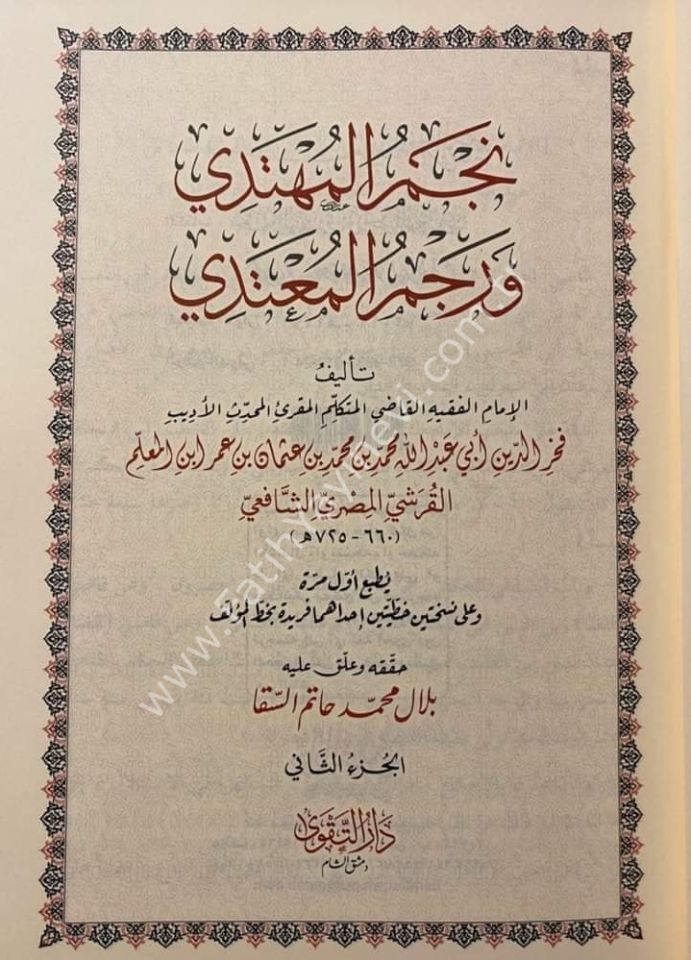 نجم المهتدي
ورجم المعتدي
تأليف
الإمام الفقيه القاضي المتكلم المقرئ المحدث الأديب
فخر الدين أبي عبد الله محمد بن محمد بن عثمان بن عمر ابن المعلم
القرشي المصري الشافعي
(٦٦٠ - ٧٢٥هـ)
يطبع أول مرة
وعلى نسختين خطيتين إحداهما فريدة بخط المؤلف
حققه وعلق عليه
بلال محمد حاتم السقا
الجزء الثاني
دار التقوى
دمشق الشام